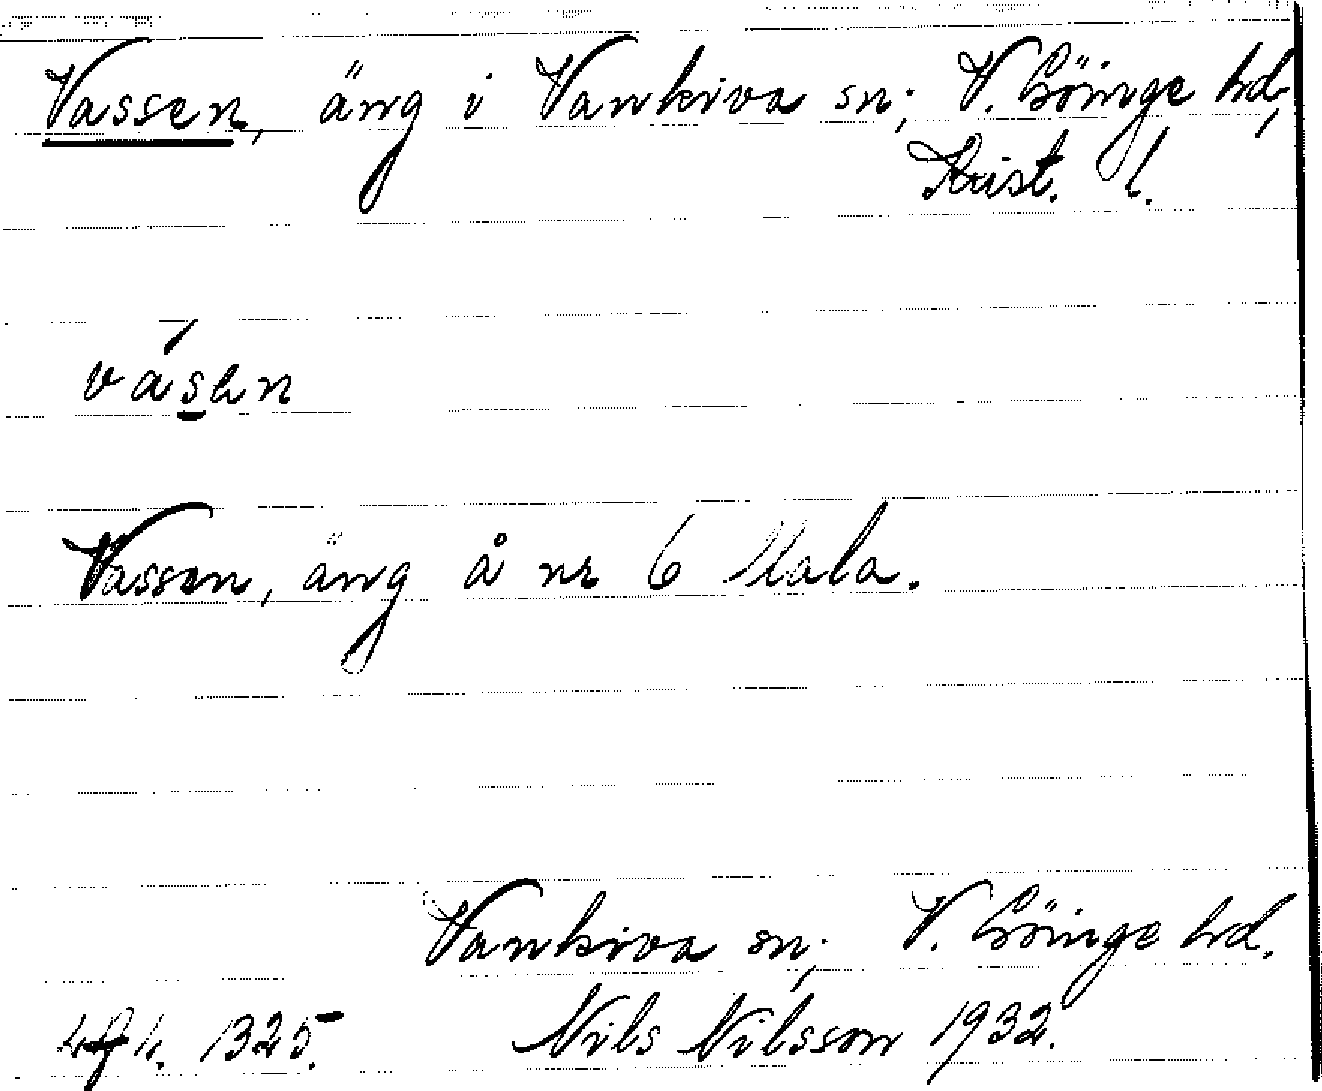 Vassen, äng i Vankiva sn; V. Göinge hd,
Krist. l.
Vassen, äng å nr 6 Mala.
Vankiva sn; V. Göinge hd.
1325. Nils Nilsson 1932.